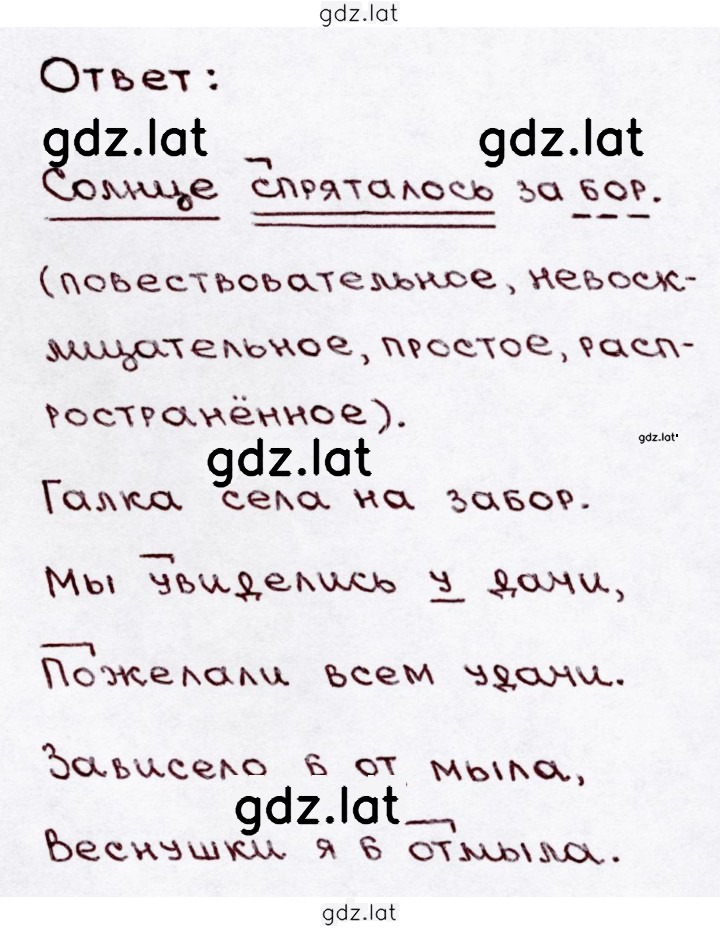 gdz.lat
Ответ:
gdz.lat gdz.lat
Солнце спряталось за бор.
(повествовательное, невоск-
лицательное, простое, расп-
ространённое).
gdz.lat
gdz.lat
Галка села на забор.
Мы увиделись у дачи,
Пожелали всем удачи.
Зависело б от мыла,
gdz.lat
Веснушки я б отмыла.
gdz.lat